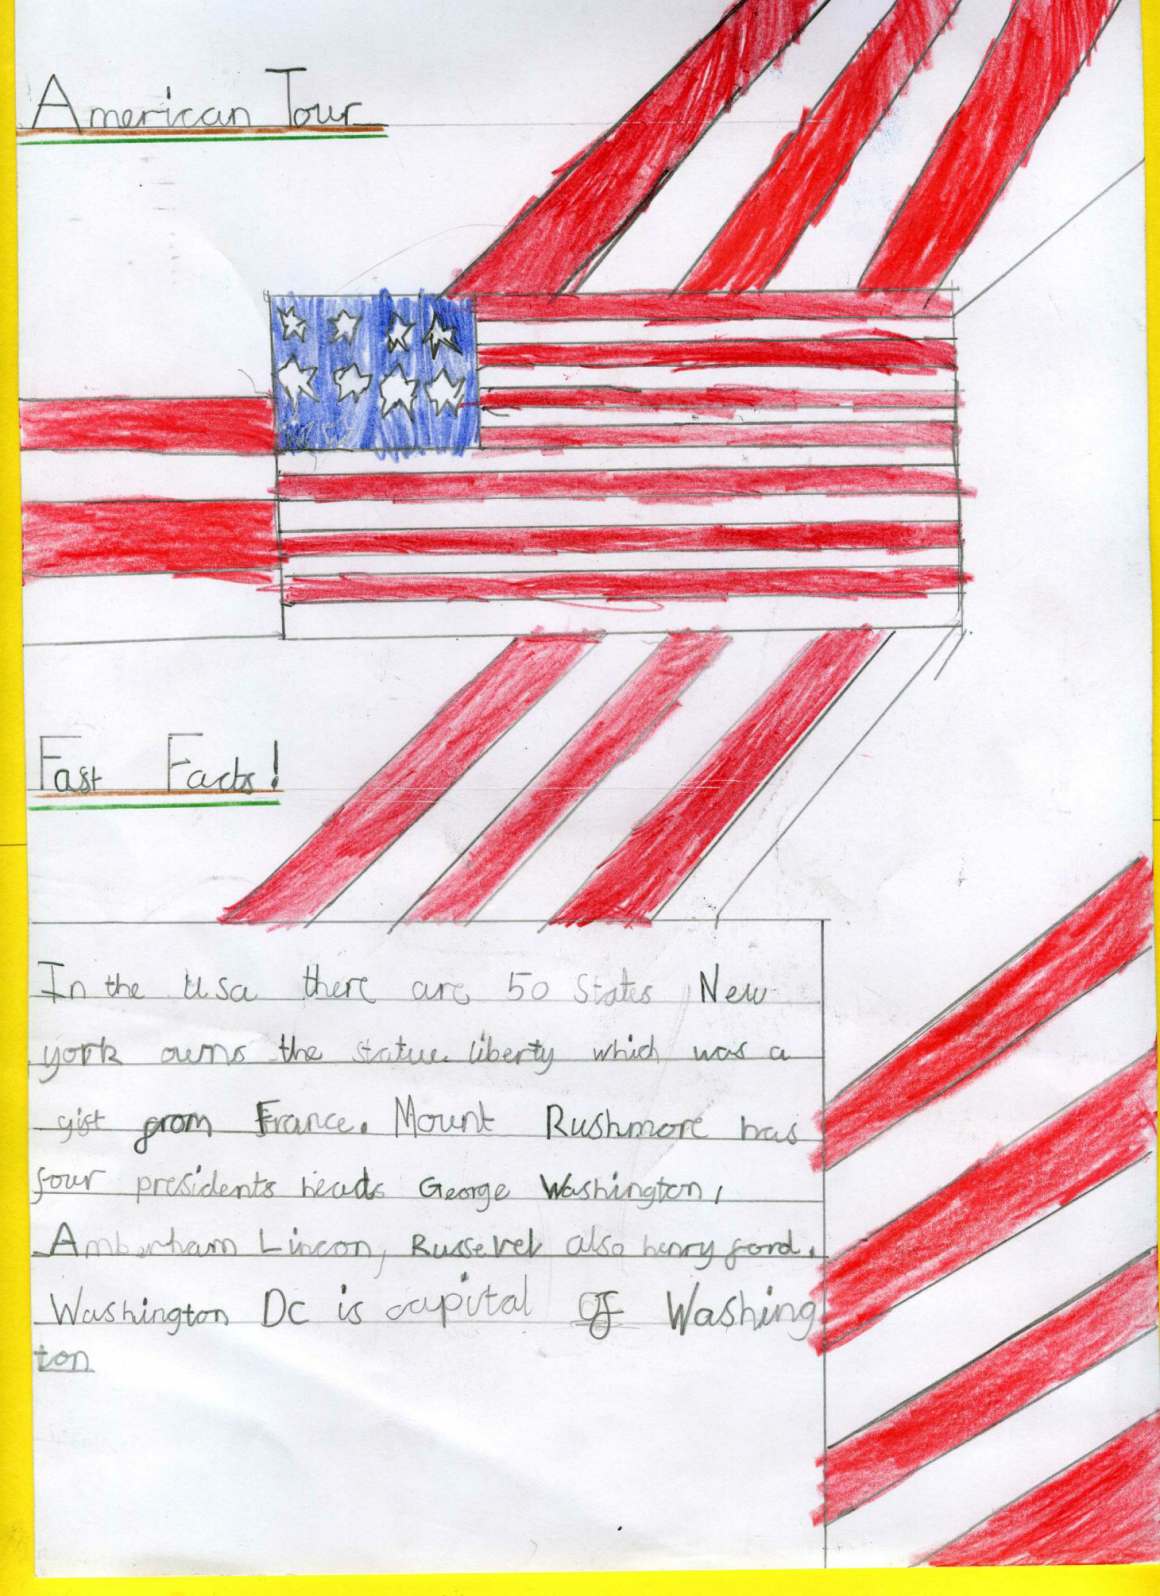 American Tour
Fast Facts!
In the Usa there are 50 States New
york owns the statue liberty which was a
gift from France. Mount Rushmore has
four presidents heads George Washington,
Amberham Lincon, Russevel also henry ford.
Washington Dc is capital of Washing
ton